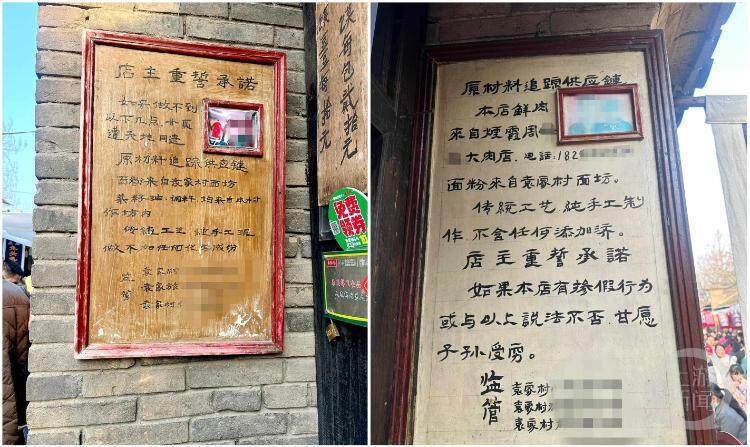 店主重誓承諾
如果做不到
以下几点,甘愿
遭天地目遣
原材料追踪供应鏈
面粉来自袁家村面坊
菜籽油、調料,均来自本村
作坊内
传統工艺純手工泥
做不加任何化学成份
监管
袁家村
袁家村
袁家村
原材料追踪供应鏈
本店鮮肉
来自烟霞周
大肉店,电話:182
面粉来自袁家村面坊。
传統工艺純手工制
作不含任何添加济。
店主重誓承諾
如果本店有掺假行为
或与以上説法不否,甘愿
子孙受窮。
监管
袁家村
袁家村
袁家村